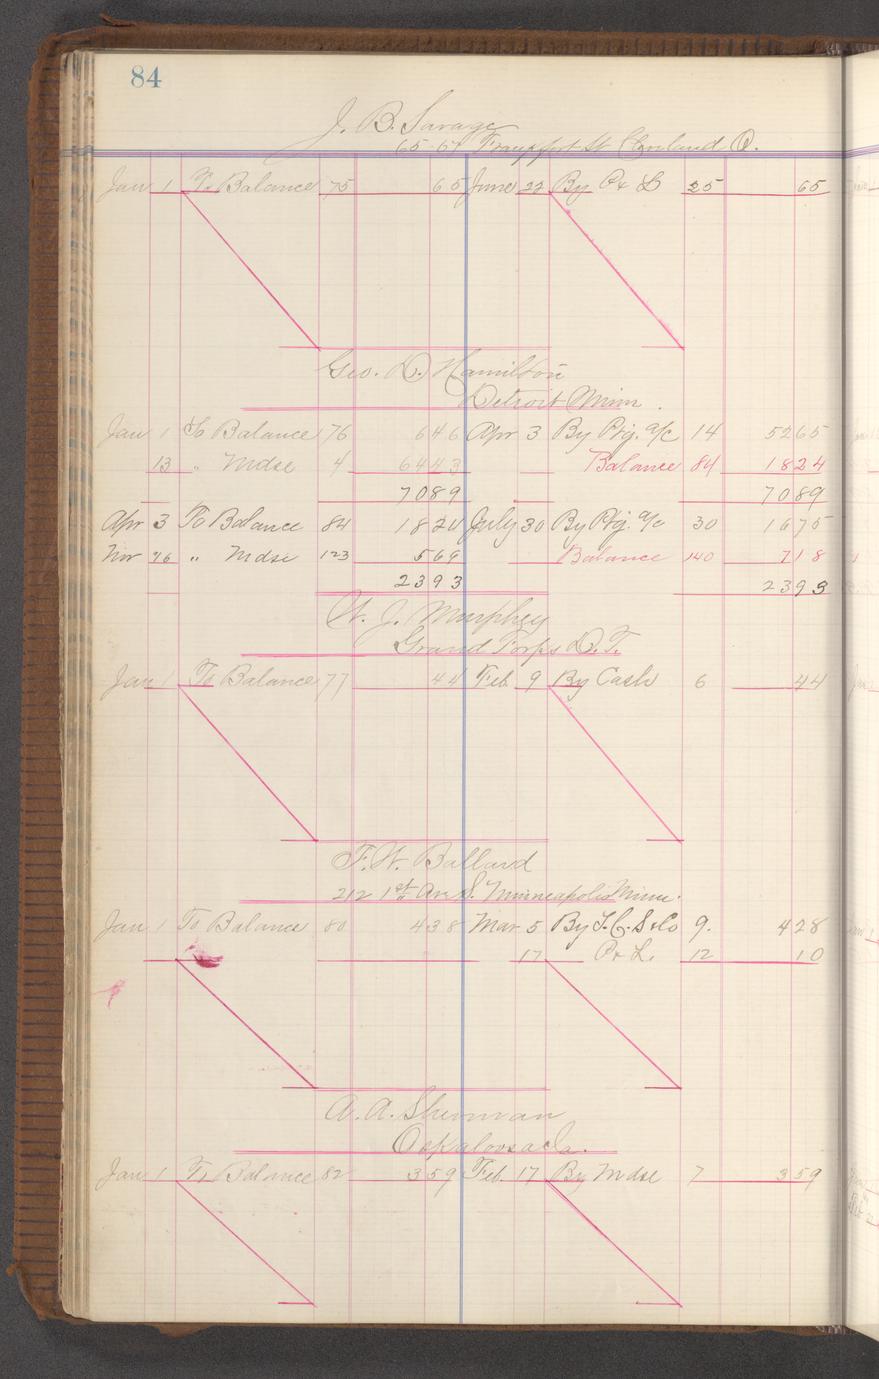 84
J. B. Savage
65-67 Frankfort St Cleveland O.
Jan 1 To Balance 75 65 June 22 By P & L 25 65
Geo. D. Hamilton
Detroit Minn.
Jan 1 To Balance 76 646 Apr 3 By Ptg. a/c 14 5265
13 " Mdse 4 6443 Balance 84 1824
7089 7089
Apr 3 To Balance 84 1824 July 30 By Ptg. a/c 30 1675
Nov 26 " Mdse 123 569 Balance 140 718
2393 2393
W. J. Murphey
Grand Forks D.T.
Jan 1 To Balance 77 44 Feb. 9 By Cash 6 44
F. W. Ballard
212 1st Ave S. Minneapolis Minn.
Jan 1 To Balance 80 438 Mar 5 By T. C. S & Co 9. 428
17 P & L. 12 10
A. A. Sherman
Oskaloosa Ia.
Jan 1 To Balance 82 359 Feb. 17 By Mdse 7 359